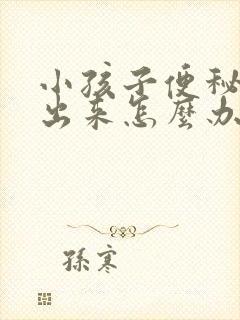 小孩子便秘
出来怎麼办
孫寒